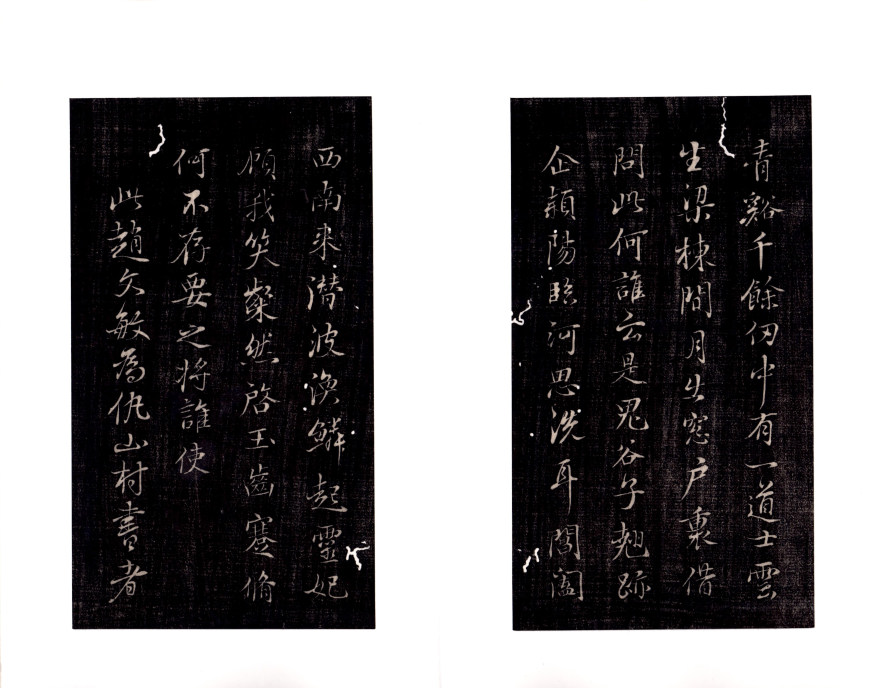 青谿千餘仞中有一道士雲
生梁棟間月出窓户裏借
問此何誰云是鬼谷子翹跡
企頴陽臨河思洗耳閶闔
西南来潜波渙鱗起靈妃
顧我笑粲然啓玉齒蹇脩
何不存要之将誰使
此趙文敏為仇山村書者